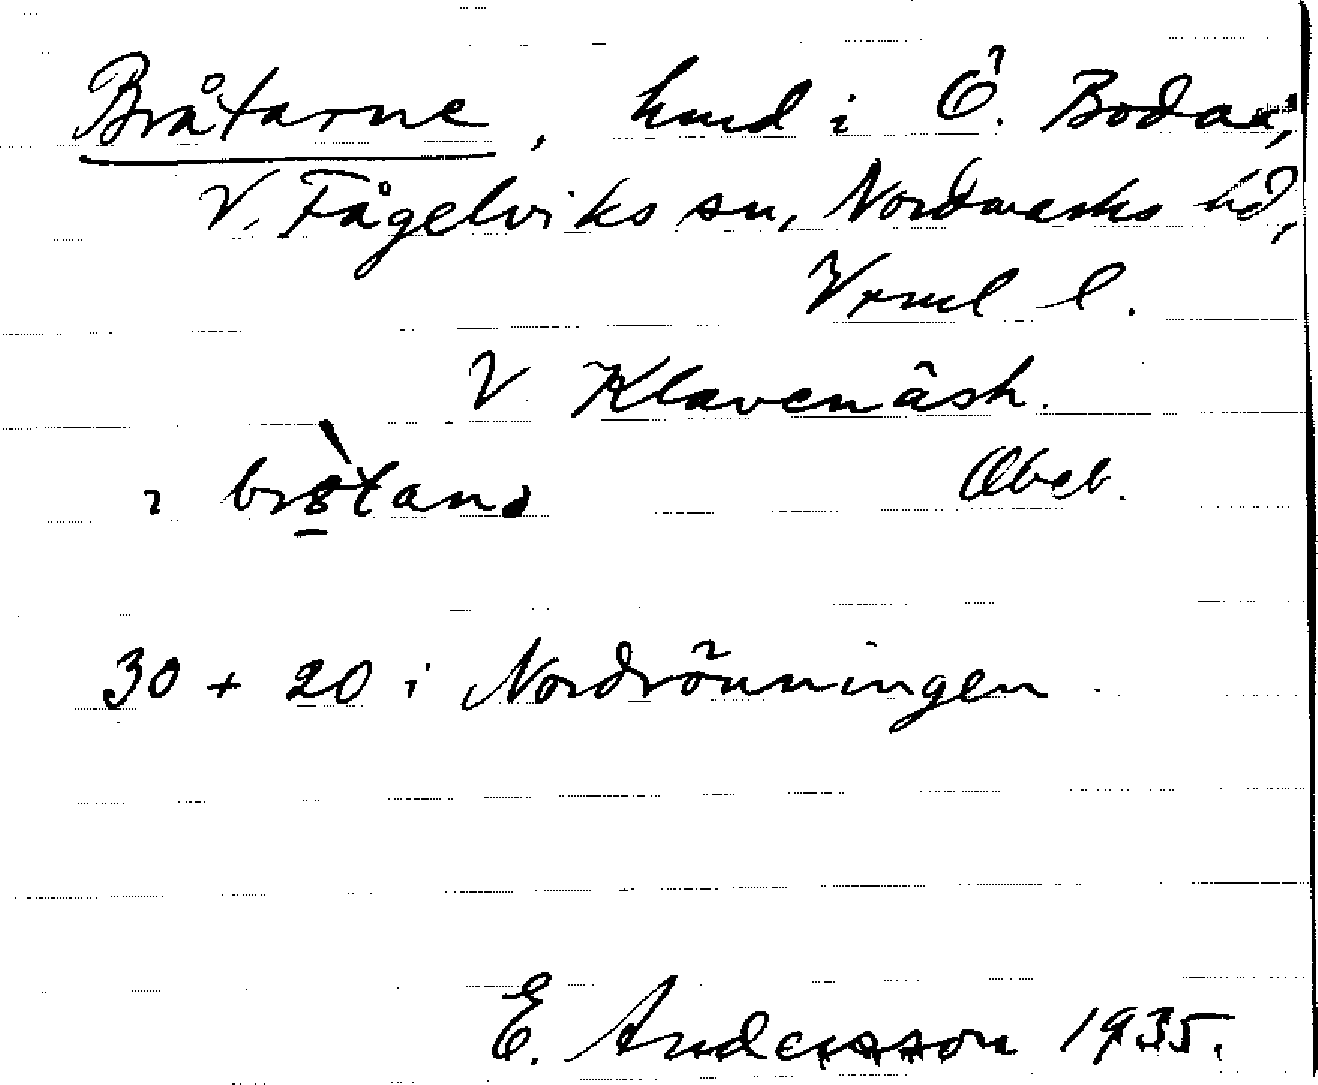 Bråtarne, hmd i Ö. Bodane,
V. Fågelviks sn, Nordmarks hd,
Vrml l.
V Klavenäsh.
Obeb.
30 + 20 i Nordrönningen
E. Andersson 1935.